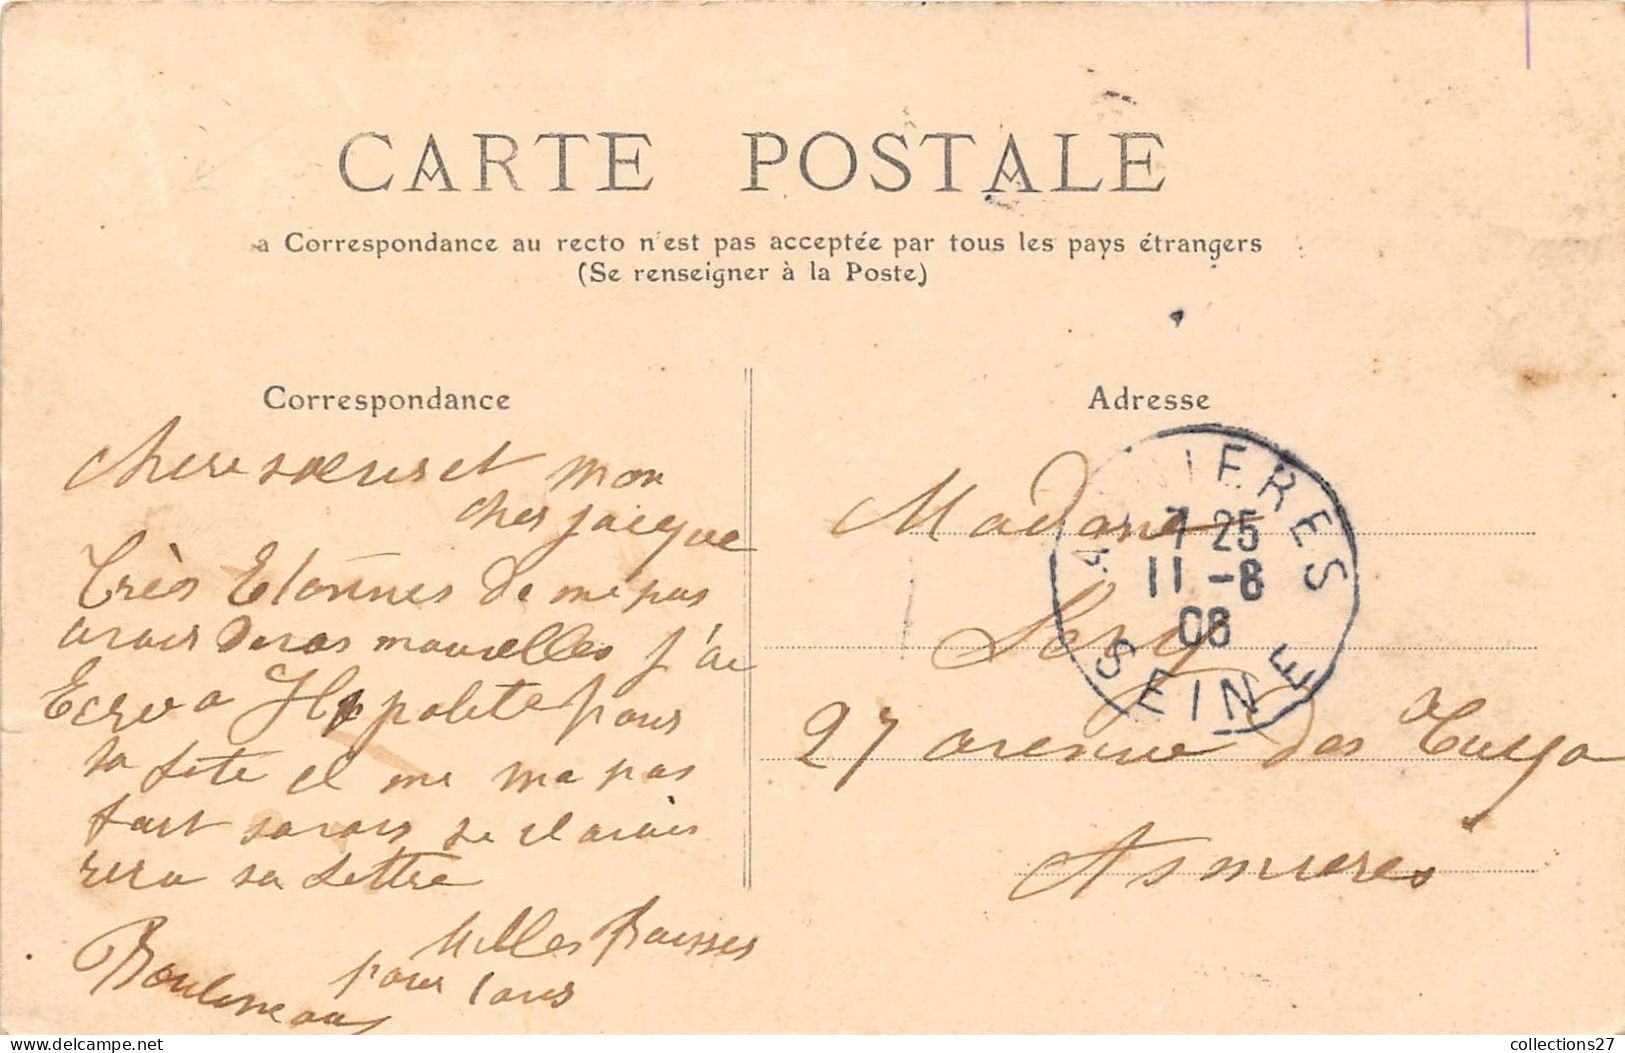 CARTE POSTALE
a Correspondance au recto n'est pas acceptée par tous les pays étrangers
(Se renseigner à la Poste)
Correspondance
Adresse
chere soeur et mon
cher jacque
Très Etonnes de me pas
avoir de vos nouvelles j'ai
Ecrva Hippolite pour
sa fete il me ma pas
fait savoir se il avais
recu sa lettre
Milles Baisses
pour tous
Madame
27 avenue des
Asnieres
ASNIERES
7 25
11 -8
08
SEINE
collections27